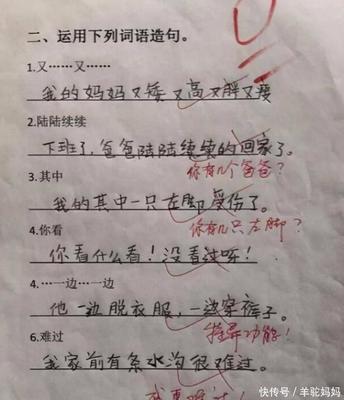 二、运用下列词语造句。
1.又……又……
我的妈妈又矮又高又胖又瘦
2.陆陆续续
下班了,爸爸陆陆续续的回家了。
你有几个爸爸?
3.其中
我的其中一只左脚受伤了。
你有几只左脚?
4.你看
你看什么看!没看过呀!
4.…一边…一边
他一边脱衣服,一边穿裤子。
特异功能!
6.难过
我家前有条水沟很难过。
快传号/羊驼妈妈